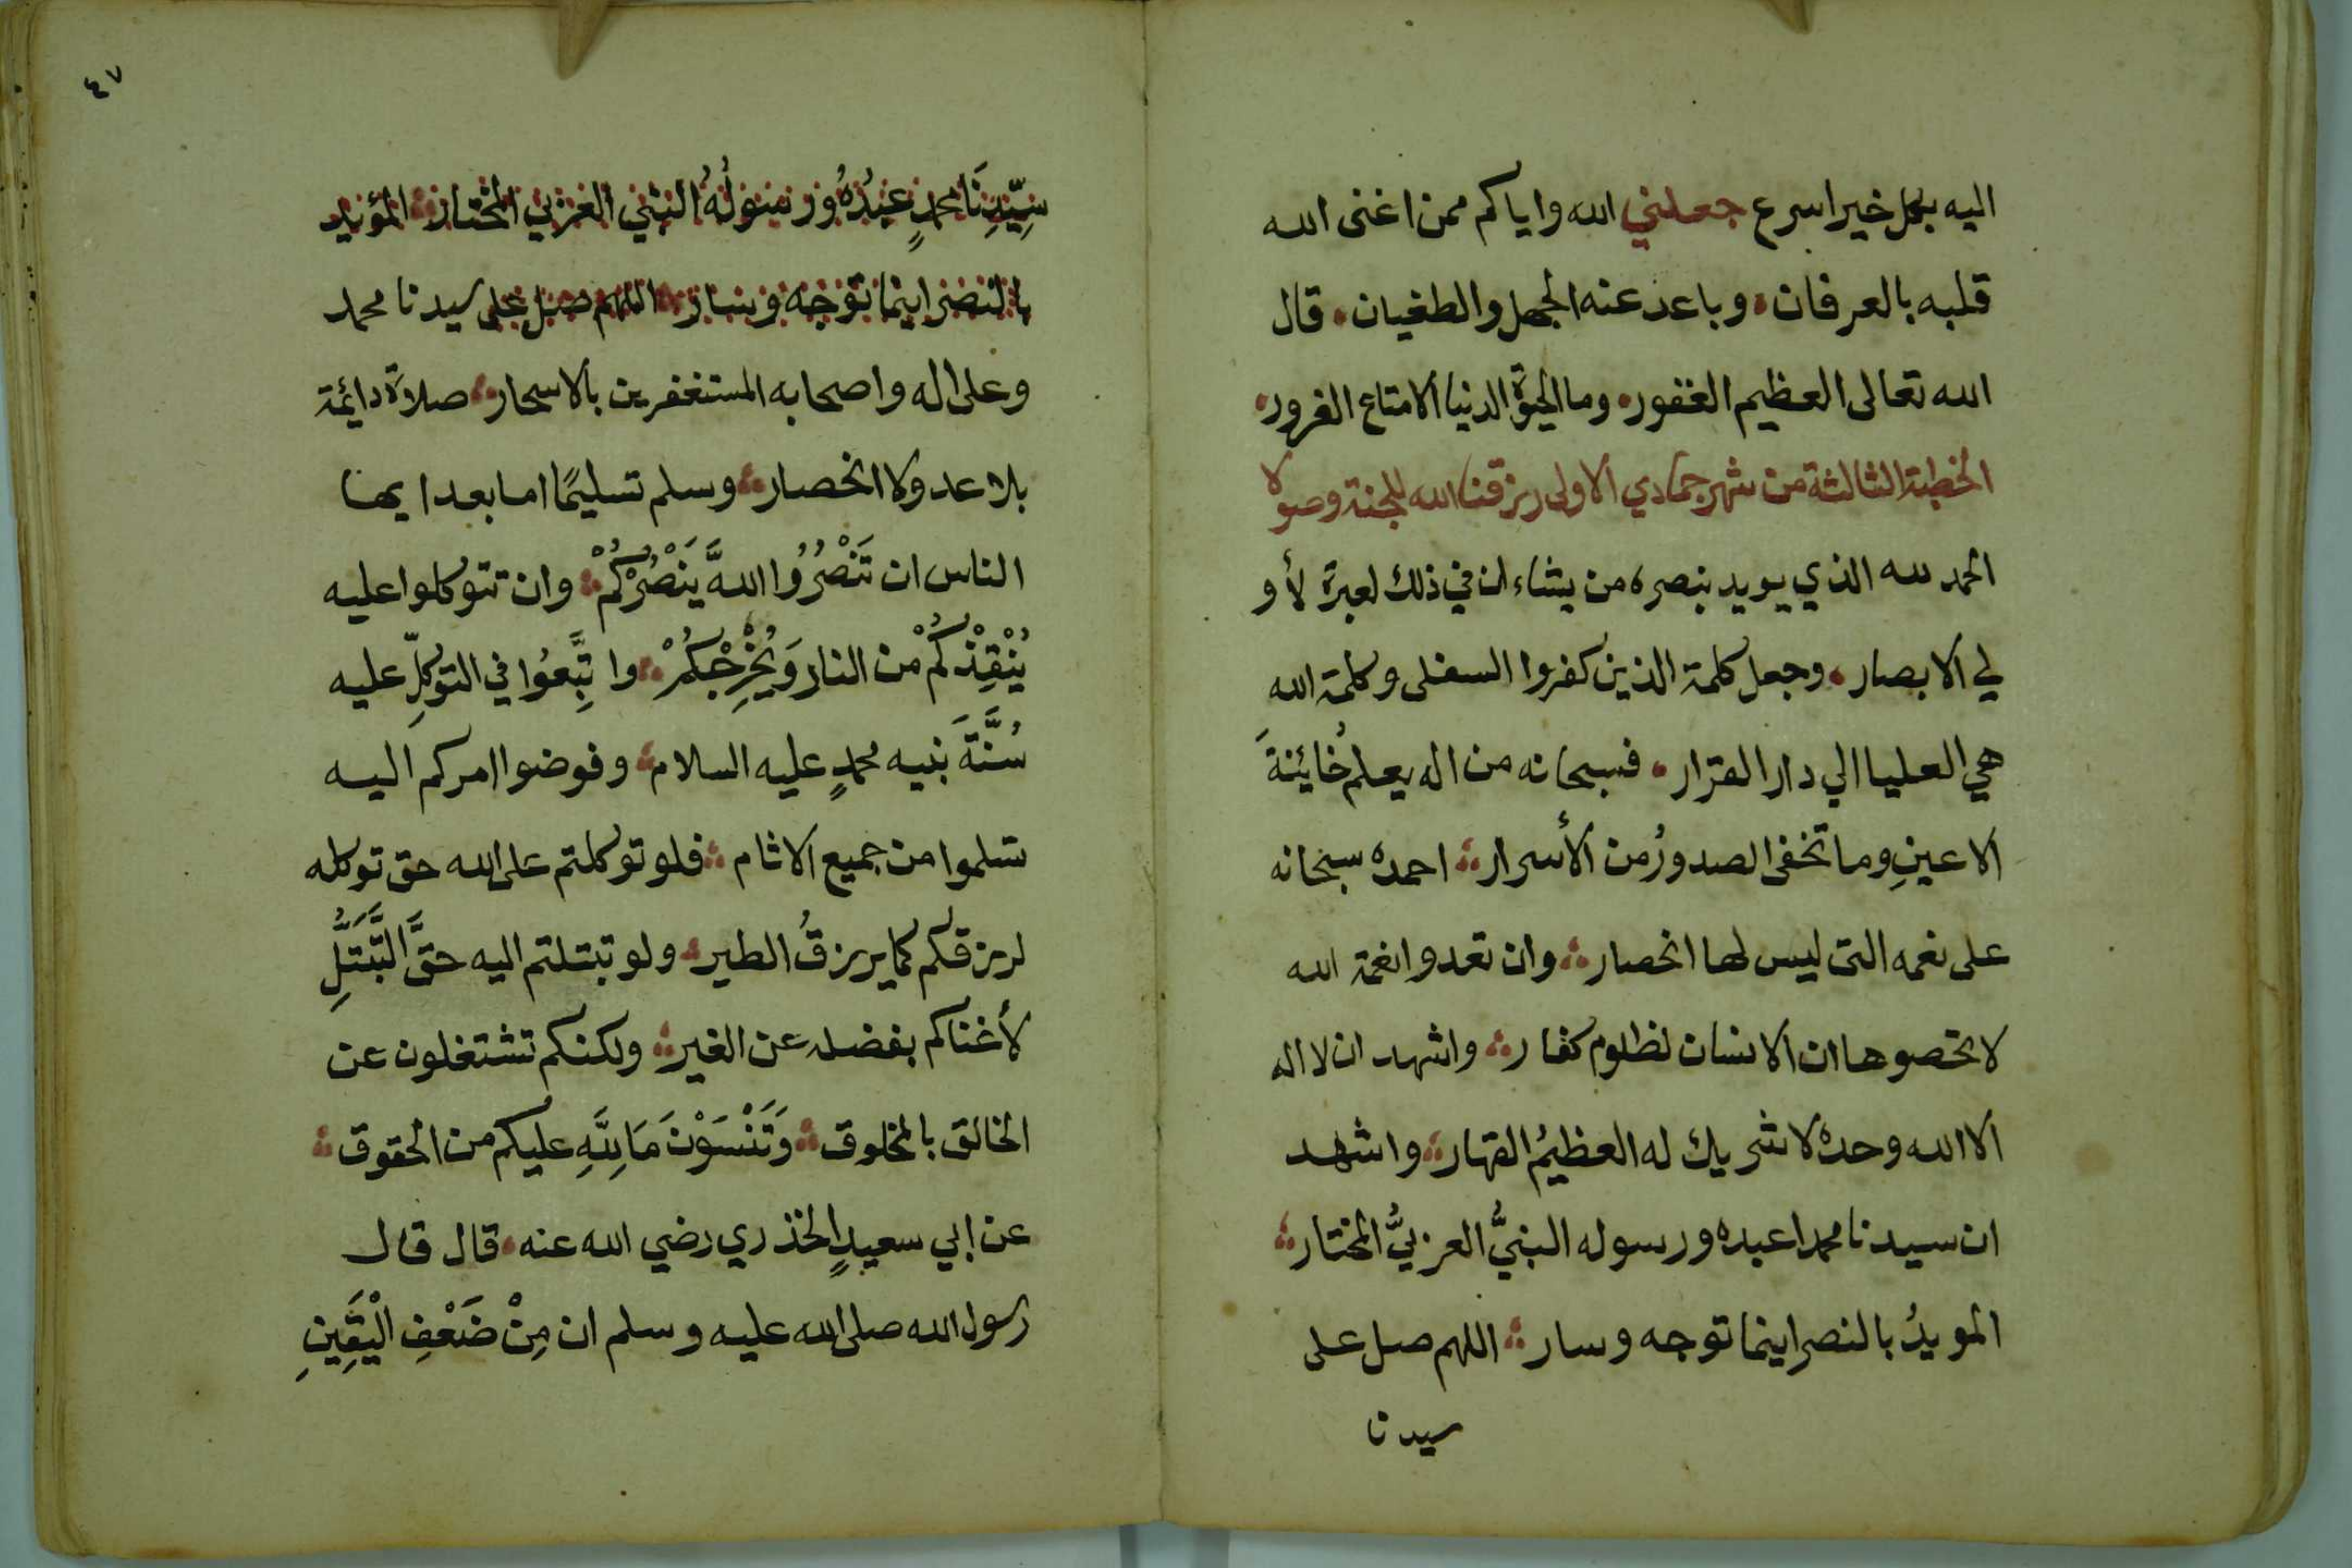 اليه بكل خير اسرع جعلني الله واياكم ممن اغنى الله
قلبه بالعرفان. وباعد عنه الجهل والطغيان. قال
الله تعالى العظيم الغفور. وما الحيوة الدنيا الا متاع الغرور.
الخطبة الثالثة من شهر جمادي الاولى رزقنا الله للجنة وصولا
الحمد لله الذي يويد بنصره من يشاء ان في ذلك لعبرة لأو
لي الابصار. وجعل كلمة الذين كفروا السفلى وكلمة الله
هي العليا الي دار القرار. فسبحانه من اله يعلم خائنةَ
الاعينِ وما تخفى الصدورُ من الأسرار؞ احمده سبحانه
على نعمه التى ليس لها انحصار؞ وان تعدوا نعمة الله
لا تحصوها ان الانسان لظلوم كفار؞ واشهد ان لا اله
الا الله وحده لا شريك له العظيمُ القهار؞ واشهد
ان سيدنا محمدا عبده ورسوله النبيُّ العربيُّ المختار؞
المويدُ بالنصر اينما توجه وسار؞ اللهم صل على
سيدنا
٤٧
سَيِّدِنَا محمدٍ عبدُهُ ورسولُهُ النبي العربي المختار؞ المؤيد
بالنصر اينما توجه وسار؞ اللهم صل على سيدنا محمد
وعلى اله واصحابه المستغفرين بالاسحار؞ صلاةً دائمة
بلا عد ولا انحصار؞ وسلم تسليمًا اما بعد ايها
الناس ان تَنْصُرُوا اللهَ يَنْصُرْكُمْ؞ وان تتوكلوا عليه
يُنْقِذْكُمْ من النار وَيُخْرِجْكُمْ؞ واتَّبِعُوا في التوكلِّ عليه
سُنَّةَ نبيه محمدٍ عليه السلام؞ وفوضوا امركم اليه
تسلموا من جميع الاثام؞ فلو توكلتم على الله حق توكله
لرزقكم كما يرزقُ الطير؞ ولو تبتلتم اليه حقَّ التَّبَتُّلِ
لأغناكم بفضله عن الغير؞ ولكنكم تشتغلون عن
الخالق بالمخلوق؞ وَتَنْسَوْنَ مَا لِلَّهِ عليكم من الحقوق؞
عن ابي سعيدٍ الخذري رضي الله عنه. قال قال
رسول الله صلى الله عليه وسلم ان مِنْ ضَعْفِ الْيَقِينِ